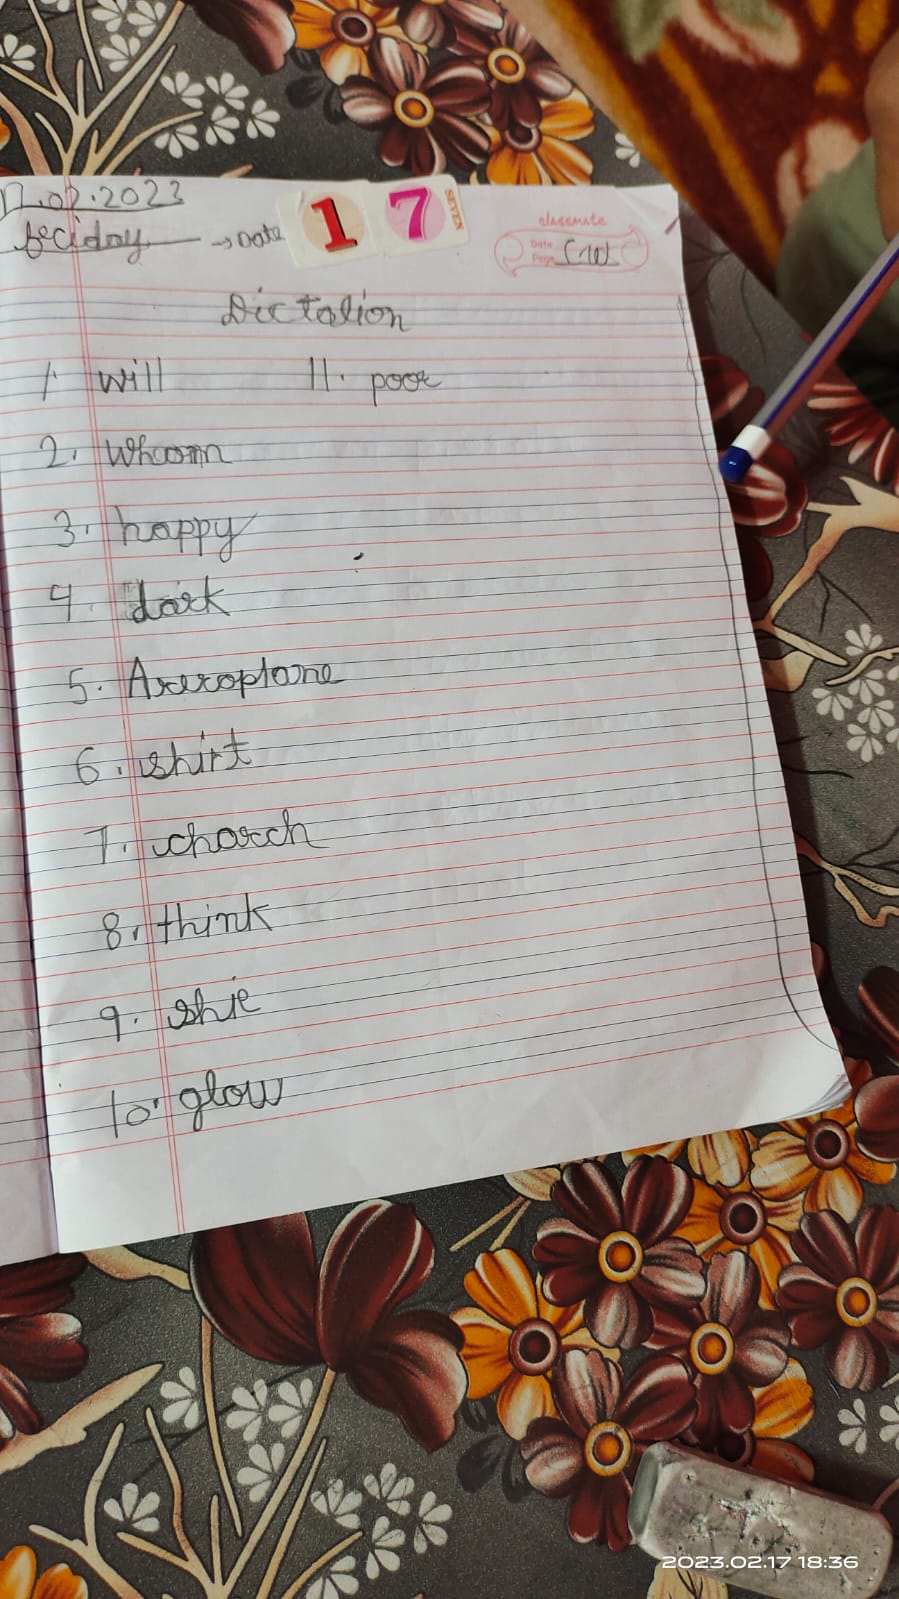 17.02.2023
friday → Date 17 SEVEN
classmate
Date
Page
Dictation
1. will 11. poor
2. whom
3. happy
4. dark
5. Areroplane
6. shirt
7. charch
8. think
9. shie
10. glow
2023.02.17 18:36